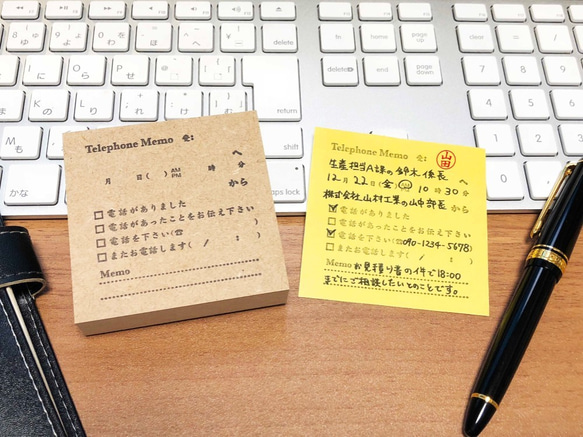 Telephone Memo 受:
へ
月 日( ) AM PM 時 分
から
電話がありました
電話があったことをお伝え下さい
電話を下さい(☎ )
またお電話します( / : )
Memo
Telephone Memo 受: 山田
生産担当A課の鈴木係長 へ
12月22日(金) AM 10時30分
株式会社山村工業の山中部長 から
電話がありました
電話があったことをお伝え下さい
電話を下さい(☎090-1234-5678)
またお電話します( / : )
Memo お見積り書の件で18:00
までにご相談したいとのことです。
delete
return
caps lock
かな
fn
home
page up
delete
end
page down
clear